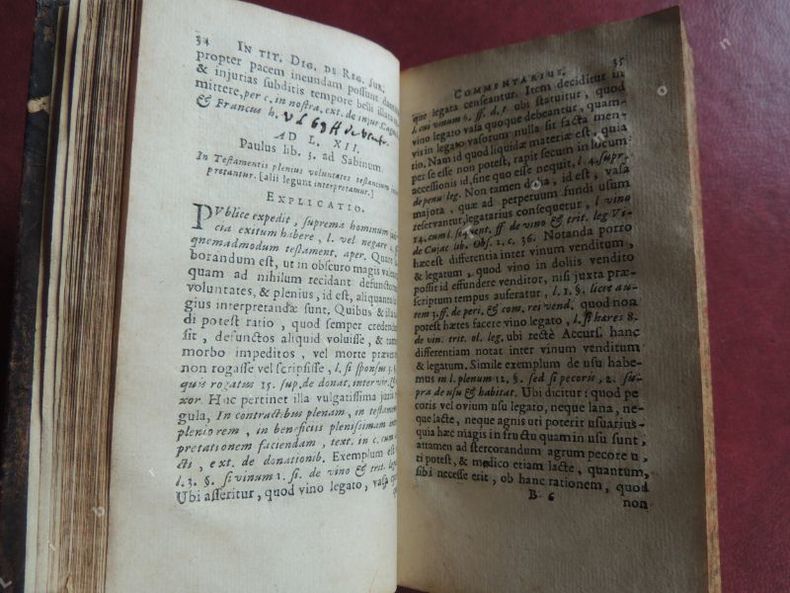 34 IN TIT. DIG. DE REG. JUR.
propter pacem ineundam possunt
& injurias subditis tempore belli
mittere, per c. in nostra, ext. de injur.
& Francus h.
AD L. XII.
Paulus lib. 3. ad Sabinum.
In Testamentis plenius voluntates testantium
pretantur. [alii legunt interpretamur.]
EXPLICATIO.
PVblice expedit, suprema hominum
cia exitum habere, l. vel negare
quemadmodum testament. aper.
borandum est, ut in obscuro magis
quam ad nihilum recidant defuncto
voluntates, & plenius, id est, aliquan
gius interpretandæ sunt. Quibus &
di potest ratio, quod semper creden
sit, defunctos aliquid voluisse, &
morbo impeditos, vel morte præ
non rogasse vel scripsisse, l. si sponsus
quis rogatus 15. sup. de donat. inter vir. &
xor. Huc pertinet illa vulgatissima juris
gula, In contractibus plenam, in testamen
pleniorem, in beneficiis plenissimam
pretationem faciendam, text. in c. cum
cti, ext. de donationib. Exemplum est
l. 3. §. si vinum 1. ff. de vino & trit. leg
Ubi asseritur, quod vino legato, vasa
COMMENTARIUS. 35
que legata censeantur. Item deciditur in
l. cui vinum h. ff. d. t. ubi statuitur, quod
vino legato vasa quoque debeantur, quam-
vis in legato vasorum nulla sit facta men-
tio. Nam id quod liquidæ materiæ est, quia
per se esse non potest, rapit secum in locum
accessionis id, sine quo esse nequit, l. 4. supr.
de penu leg. Non tamen dolia, id est, vasa
majora, quæ ad perpetuum fundi usum
reservantur, legatarius consequetur, l. vino
14. cum l. sequent. ff de vino & trit. leg Vi-
de Cujac lib. Obs. 2. c. 36. Notanda porro
hæc est differentia inter vinum venditum,
& legatum, quod vino in doliis vendito
possit id effundere venditor, nisi juxta præ-
scriptum tempus auferatur, l. 1. §. licet au-
tem 3. ff. de peri. & com. rei vend. quod non
potest hæres facere vino legato, l. si hæres 8.
de vin. trit. ol. leg. ubi rectè Accurs. hanc
differentiam notat inter vinum venditum
& legatum. Simile exemplum de usu habe-
mus in l. plenum 12. §. sed si pecoris, 2. su-
pra de usu & habitat. Ubi dicitur: quod pe
coris vel ovium usu legato, neque lana, ne-
que lacte, neque agnis uti poterit usuarius
quia hæc magis in fructu quam in usu sunt,
attamen ad stercorandum agrum pecore u,
ti potest, & modico etiam lacte, quantum,
sibi necesse erit, ob hanc rationem, quod
B 6 non